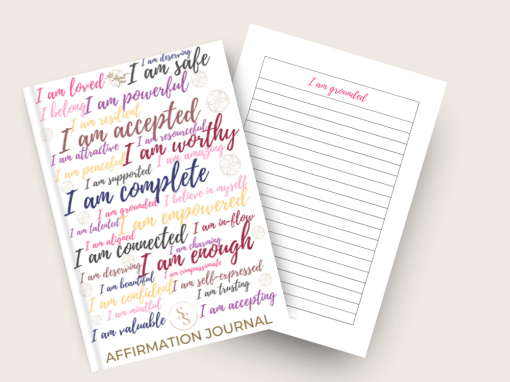 I am deserving
I am loved
I am safe
I belong
I am powerful
I am resilient
I am accepted
I am resourceful
I am attractive
I am worthy
I am peaceful
I am amazing
I am supported
I am complete
I believe in myself
I am grounded
I am empowered
I am talented
I am in-flow
I am aligned
I am connected
I am charming
I am enough
I am deserving
I am compassionate
I am beautiful
I am self-expressed
I am confident
I am trusting
I am mindful
I am accepting
I am valuable
AFFIRMATION JOURNAL
I am grounded